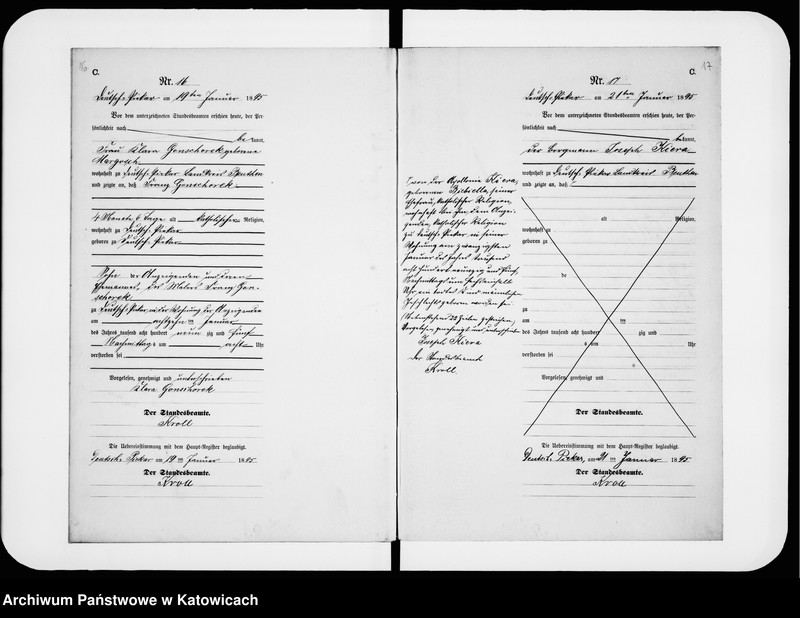 16.
C.
Nr. 16
Deutsch-Piekar am 19ten Januar 1895
Vor dem unterzeichneten Standesbeamten erschien heute, der Per-
sönlichkeit nach
be kannt,
Frau Klara Gonschorek geborene
wohnhaft zu Deutsch-Piekar Landkreis Beuthen
und zeigte an, daß Franz Gonschorek
4 Monate, 6 Tage alt katholischer Religion,
wohnhaft zu Deutsch-Piekar
geboren zu Deutsch-Piekar
Sohn der Anzeigenden und deren
Ehemannes, des Franz Gon-
schorek
zu Deutsch-Piekar, in der Wohnung der Anzeigenden
am achtzehn ten Januar
des Jahres tausend acht hundert neun zig und fünf
Nachmittags um acht Uhr
verstorben sei
Vorgelesen, genehmigt und unterschrieben
Klara Gonschorek
Der Standesbeamte.
Kroll
Die Uebereinstimmung mit dem Haupt-Register beglaubigt.
Deutsch-Piekar am 19 ten Januar 1895
Der Standesbeamte.
Kroll
17
C.
Nr. 17
Deutsch-Piekar am 21ten Januar 1895
Vor dem unterzeichneten Standesbeamten erschien heute, der Per-
sönlichkeit nach
be kannt,
der Bergmann Joseph Kiera
wohnhaft zu Deutsch-Piekar Landkreis Beuthen
und zeigte an, daß
von der Apollonia Kiera,
geborenen seiner
Ehefrau, katholischer Religion,
wohnhaft bei ihm dem Anzei-
genden, katholischer Religion
zu Deutsch-Piekar in seiner
Wohnung am zwanzigsten
Januar des Jahres tausend
acht hundert neunzig und fünf,
Vormittags um Uhr ein todtes Kind männlichen
Geschlechts geboren worden sei.
Vorstehende 22 Zeilen gestrichen,
Vorgelesen, genehmigt und unterschrieben
Joseph Kiera
Der Standesbeamte
Kroll
alt Religion,
wohnhaft zu
geboren zu
de
zu
am ten
des Jahres tausend acht hundert zig und
s um Uhr
verstorben sei
Vorgelesen, genehmigt und
Der Standesbeamte.
Die Uebereinstimmung mit dem Haupt-Register beglaubigt.
Deutsch-Piekar, am 21 ten Januar 1895
Der Standesbeamte.
Kroll
Archiwum Państwowe w Katowicach